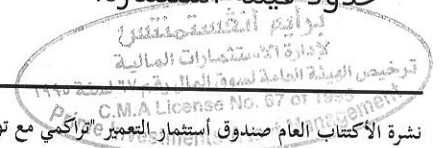 حدود فيه استثماره
برايم انفستمنتس
لإدارة الاستثمارات المالية
ترخيص الهيئة العامة لسوق المال رقم ٦٧ لسنة ١٩٩٥
C.M.A License No. 67 of 1995
Prime Investments Management
نشرة الأكتتاب العام صندوق أستثمار التعمير "تراكمي مع